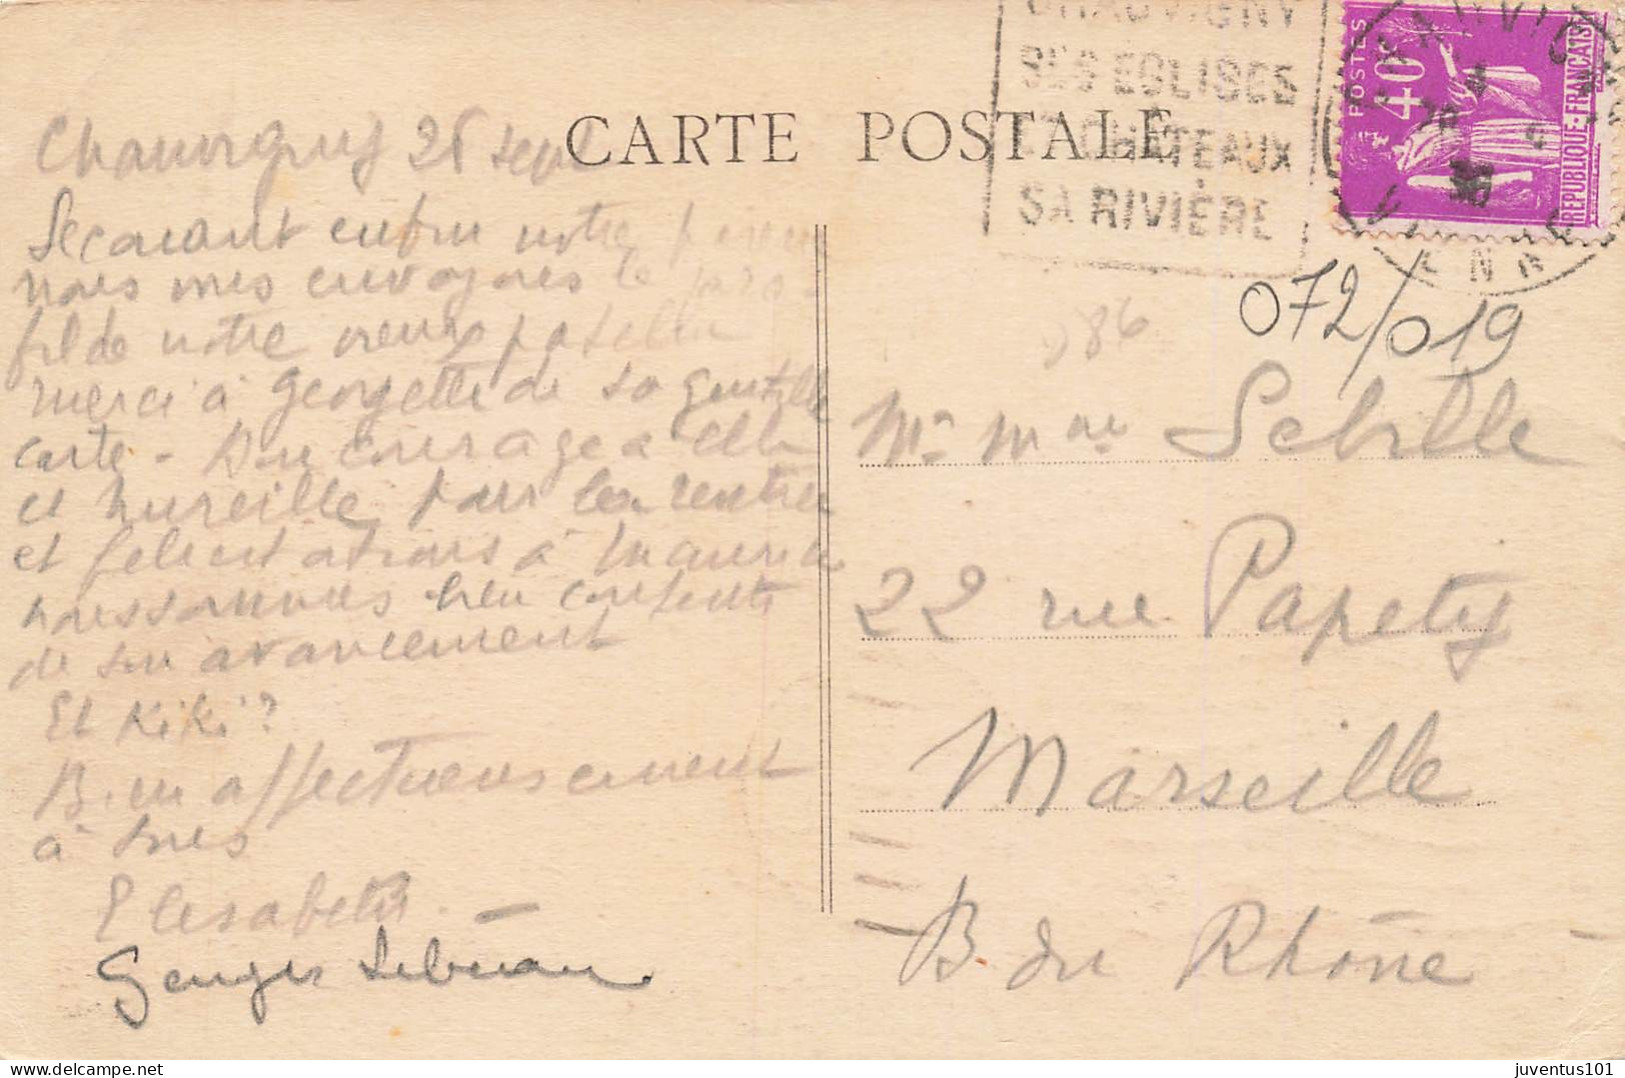 CHAUVIGNY
SES EGLISES
ET CHATEAUX
SA RIVIÈRE
POSTES
40c
REPUBLIQUE-FRANCAISE
CARTE POSTALE
Chauvigny 26 sept
enfin notre
nous mes envoyons le
fil de notre vieux patelin
merci à Georgette de sa gentille
carte - Bon courage a elle
et Mireille pour la rentrée
et félicitations à Maurice
nous sommes bien contents
de son avancement
Et Kiki?
Bien affectueusement
à tous
Elisabeth
Georges
086
072/019
Mr Mme Sebille
22 rue Papety
Marseille
B. du Rhône
juventus101